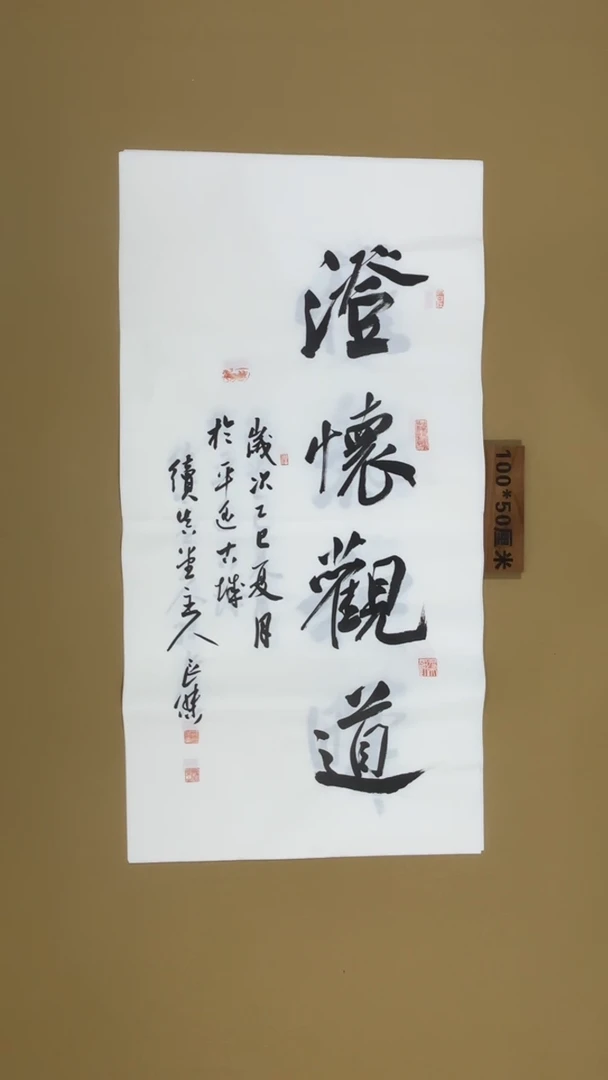 澄懷觀道
歲次乙巳夏月
於平遥古城
續真堂主人
100*50厘米